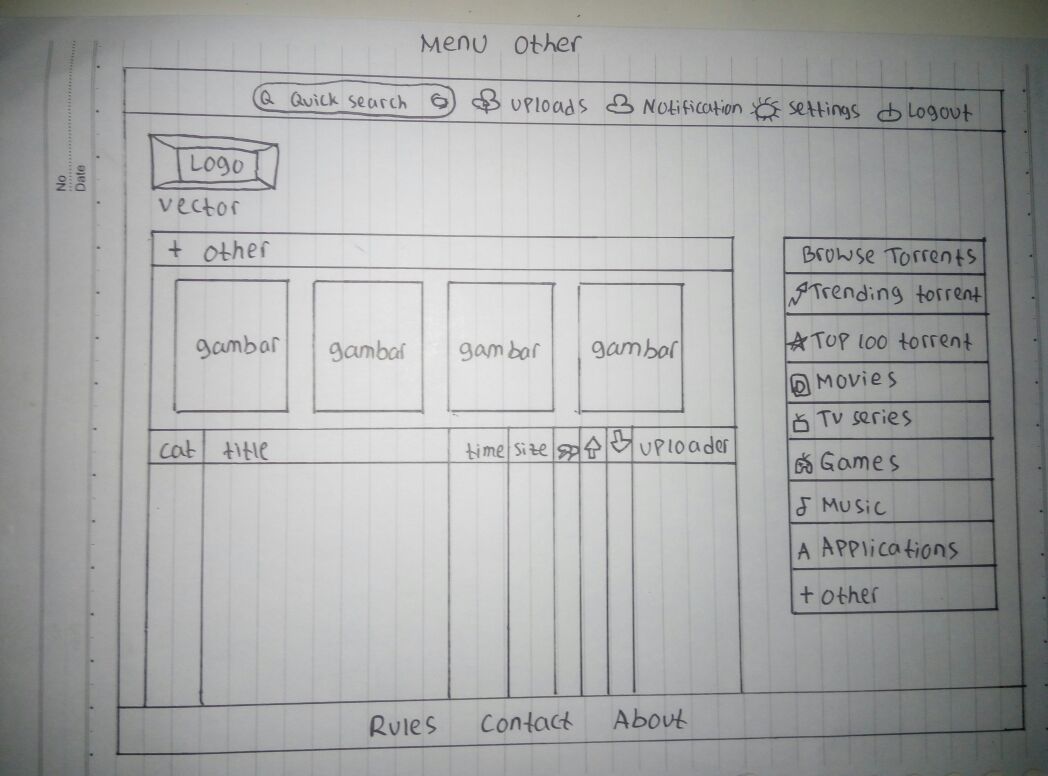 Menu Other
Quick search Uploads Notification settings Logout
Logo
vector
+ other
gambar gambar gambar gambar
cat title time size uploader
Browse Torrents
Trending torrent
Top 100 torrent
Movies
TV series
Games
Music
A Applications
+ other
Rules Contact About
No
Date